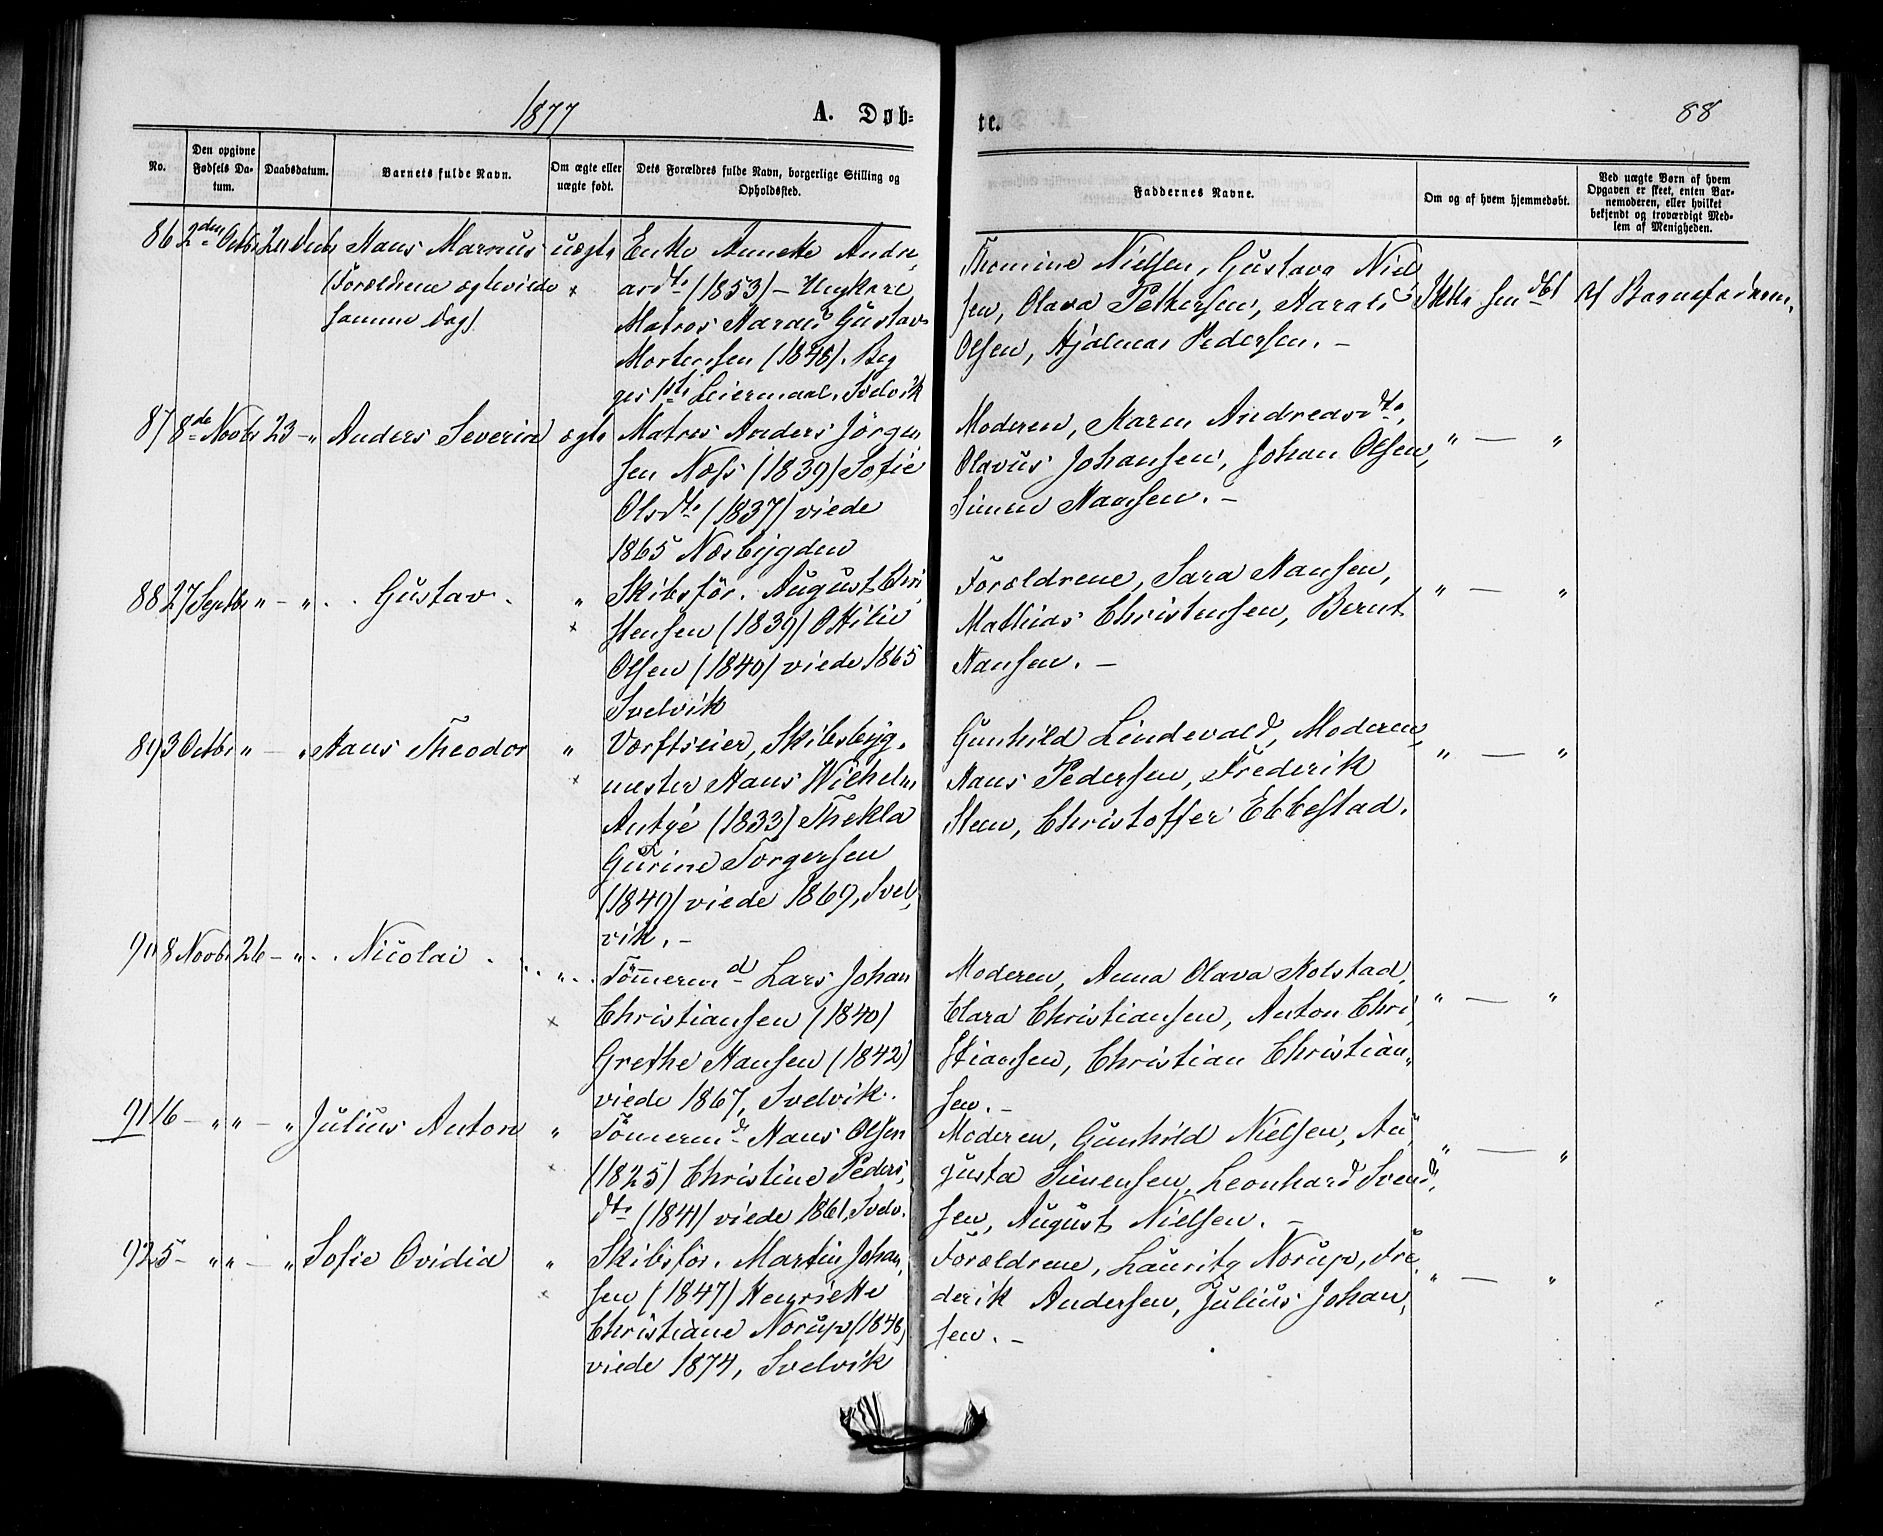 1877
A. Døb-
te.
88
No.
Den opgivne Fødsels Da-tum.
Daabsdatum.
Barnets fulde Navn.
Om ægte eller uægte født.
Dets Forældres fulde Navn, borgerlige Stilling og Opholdssted.
Faddernes Navne.
Om og af hvem hjemmedøbt.
Ved uægte Børn af hvem Opgaven er skeet, enten Bar-nemoderen, eller hvilket bekjendt og troværdigt Med-lem af Menigheden.
86 2den Octbr Decb Hans Marcus uægte Enke Annette Andre,
(Forældrene ægteviede × asdtr (1853) – Ungkarl
samme Dag) Matros Harald Gustav
Mortensen (1848). Beg
ges 1ste Leiermaal. Svelvik
Thomine Nielsen, Gustava Niel
sen, Olava Pettersen, Harald
Olsen, Hjalmar Pedersen. –
Ikke hmdbt Af Barnefaderen.
87 8de Novbr 23 – " Anders Severin ægte Matros Anders Jörgen
sen Næss (1839) Sofie
Olsdtr (1837) viede
1865 Nesbygden
Moderen, Karen Andreasdtr,
Olavus Johansen, Johan Olsen,
Simen Hansen. –
" — "
88 27 Septbr " – " . . Gustav . " Skibsför. August Chri
× stensen (1839) Ottilie
Olsen (1840) viede 1865
Svelvik
Forældrene, Sara Hansen,
Mathias Christensen, Bernt
Hansen. –
" — "
89 3 Octbr " – " Hans Theodor " Værftseier, Skibsbyg.
× mester Hans Wilhelm
Antge (1833) Thekla
Gurine Torgersen
(1849) viede 1869, Svel,
vik. –
Gunhild Lindevald, Moderen,
Hans Pedersen, Frederik
Steen, Christoffer Ebbestad.
" — "
90 8 Novbr 26 – " . . Nicolai . . . " . . Tömermd Lars Johan
× Christiansen (1840)
Grethe Hansen (1842)
viede 1867, Svelvik.
Moderen, Anna Olava Kolstad,
Clara Christiansen, Anton Chri,
stiansen, Christian Christian,
sen. –
" — "
91 16 – " " – " Julius Anton " Tömermd Hans Olsen
× (1825) Christine Peders,
dtr (1841) viede 1861, Svelv.
Moderen, Gunhild Nielsen, Au,
gusta Simensen, Leonhard Svend,
sen, August Nielsen. –
" — "
92 5 – " " – " Sofie Ovidia " Skibsför. Martin Johan,
× sen (1847) Henriette
Christiane Norup (1848)
viede 1874, Svelvik
Forældrene, Lauritz Norup, Fre
derik Andersen, Julius Johan,
sen. –
" — "